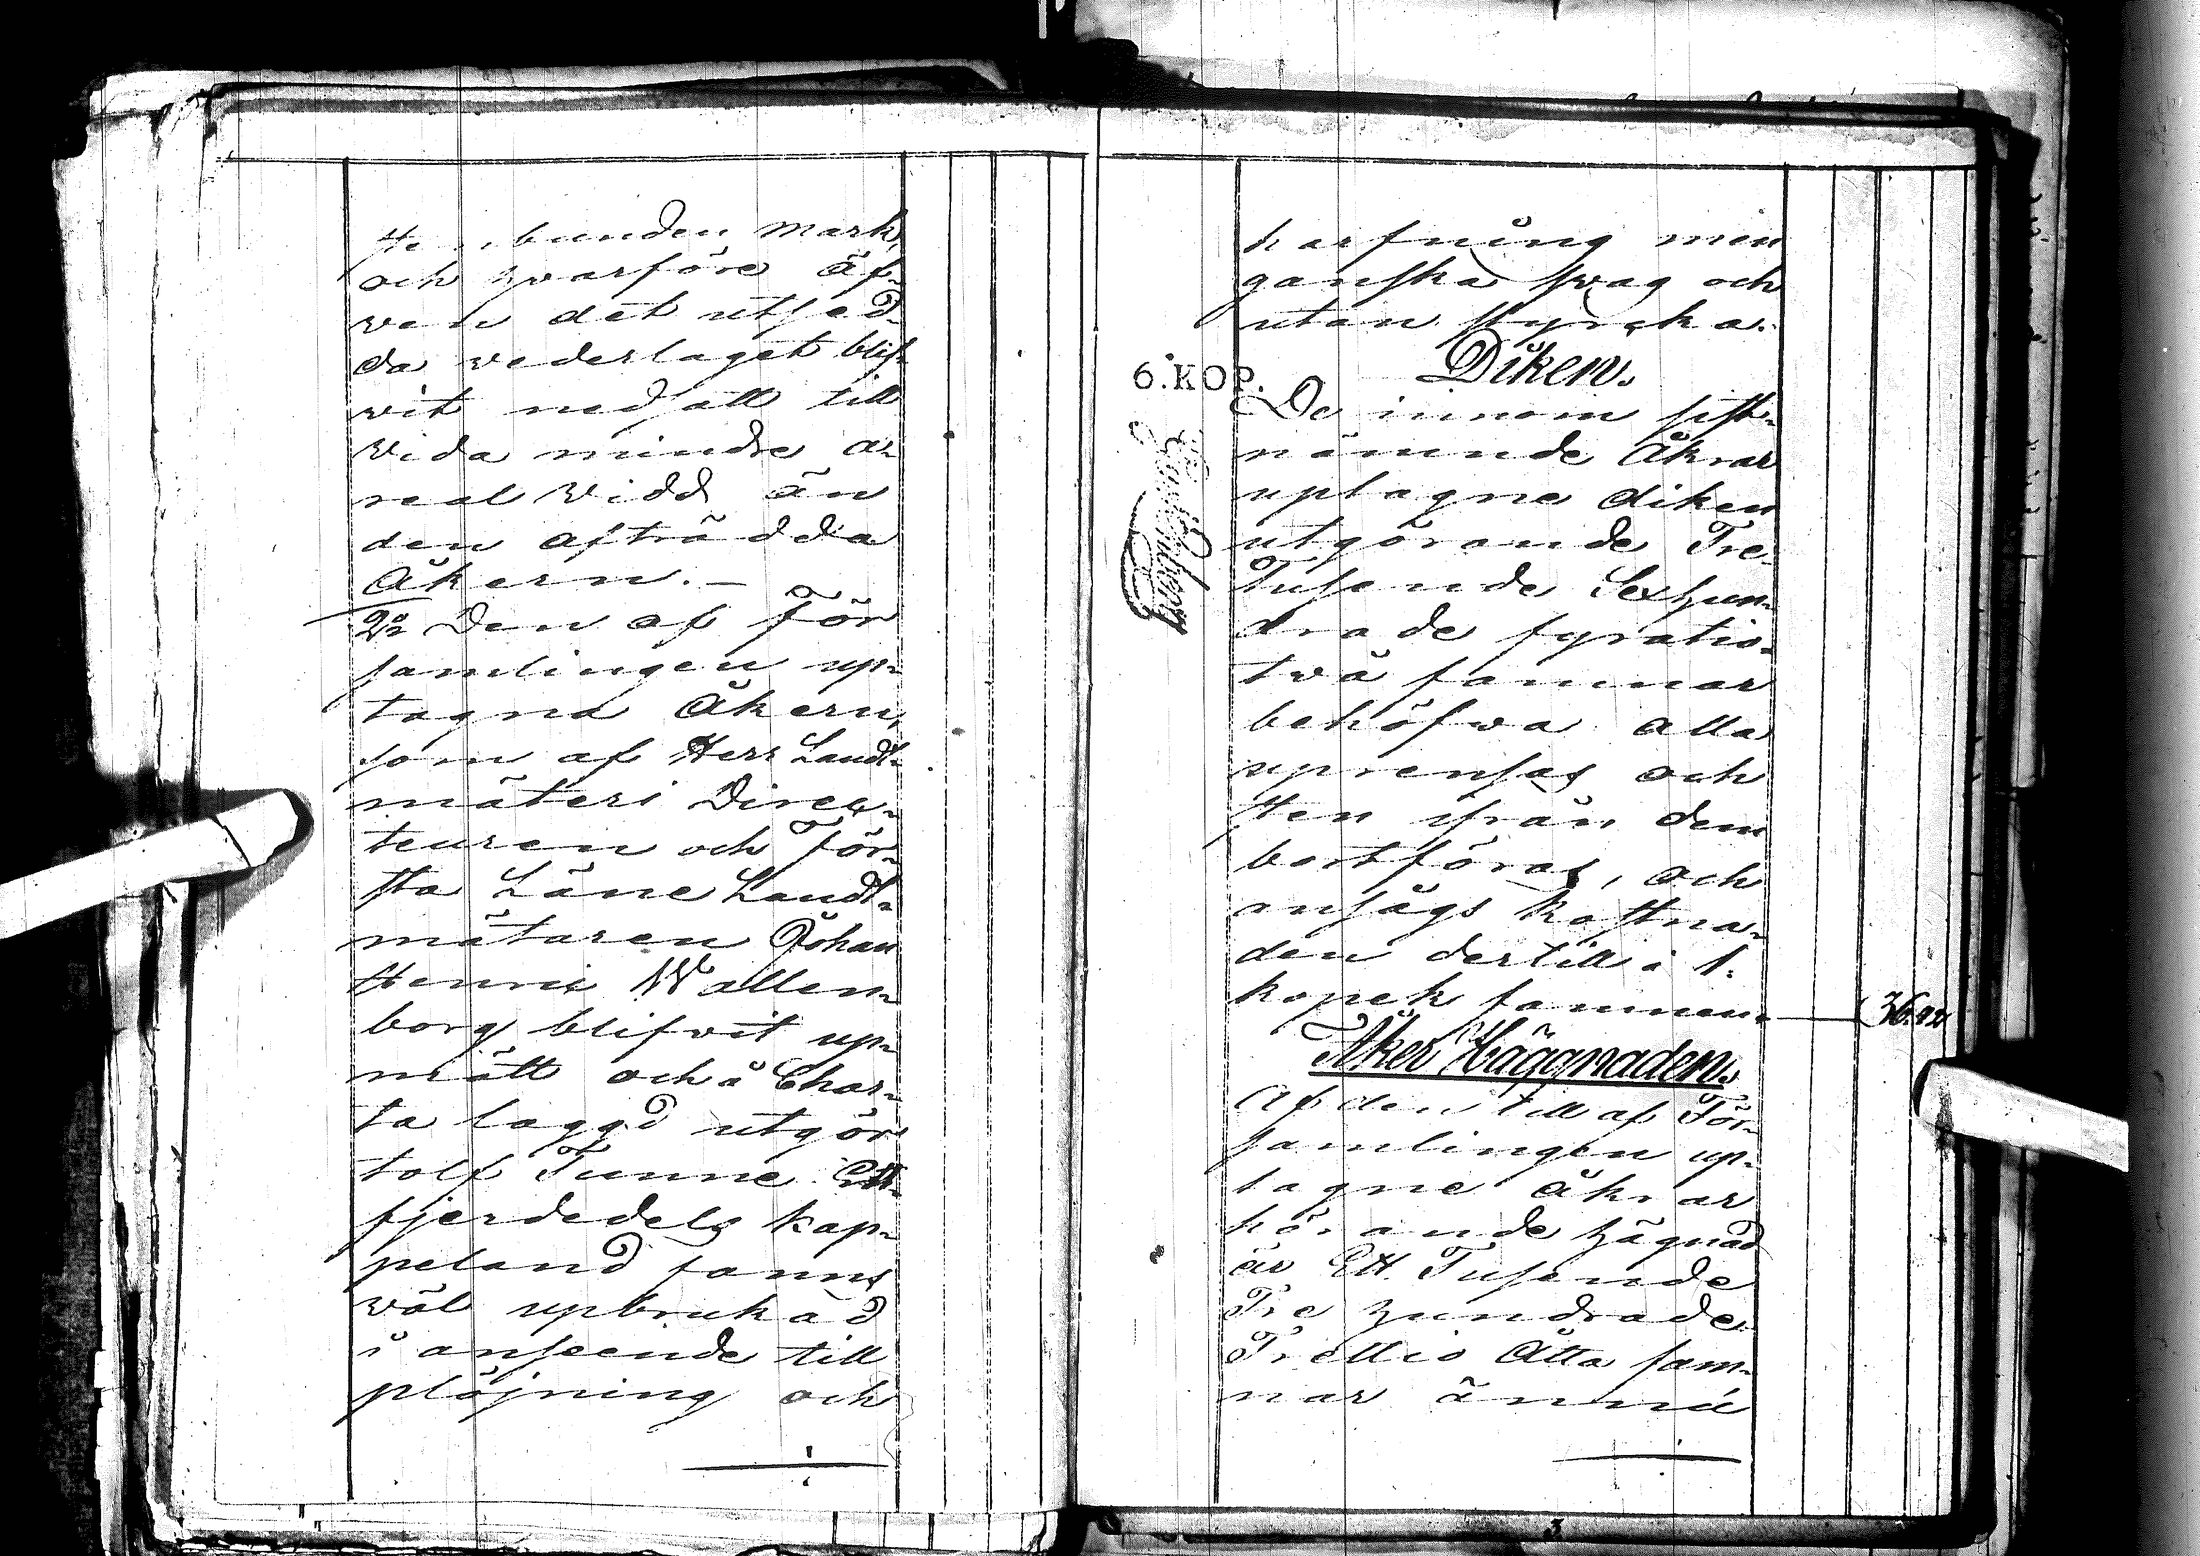 stenbunden mark,
och hvarföre äf-
wen det utsed-
da wederlaget blif-
wit nedsatt till
wida mindre a-
real Widd än
den afträdda
Åkern. –
2o Den af För
samlingen up-
tagna Åkern,
som af Herr Landt-
mäteri Direc-
teuren och För-
sta Läne Landt-
mätaren Johan
Henric Wallen-
borg blifvit up-
mätt och å Char-
ta laggd utgör
tolf Tunne Ett
fjerdedels kap-
peland fanns
wäl upbrukad
i anseende till
plöjning och
harfning men
ganska swag och
utan styrcka.
Diken.
6.KOP.
De innom sist-
nämnde Åkrar
uptagne diken
utgörande Tre
Tusende Sexhun-
drade fyratio-
två famnar
behöfwa alla
uprensas och
sten ifrån dem
bortföras, och
ansågs kostna-
den dertill à 1.
kopek famnen 36.42
Åker Häggnaden.
Af den till af För-
samlingen up-
tagne åkrar
hörande hägnad
är Ett Tusende
Tre hundrade
Trettio Åtta fam-
nar ännu